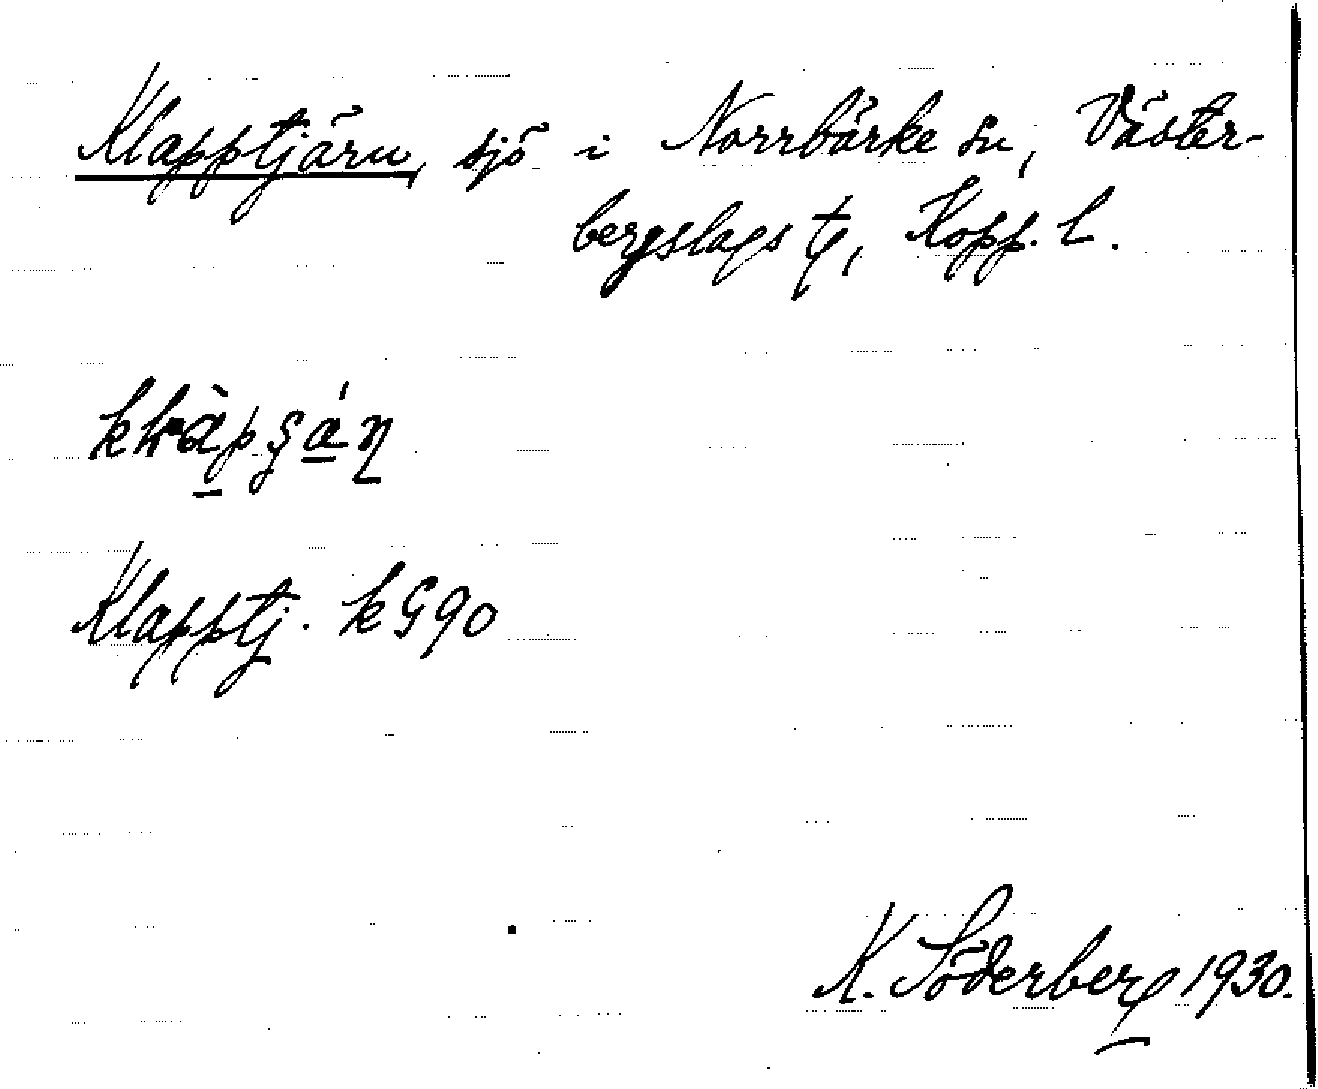 Klapptjärn, sjö i Norrbärke sn, Väster-
bergslags
Kopp. l.
Klapptj. kG90
K. Söderberg 1930.